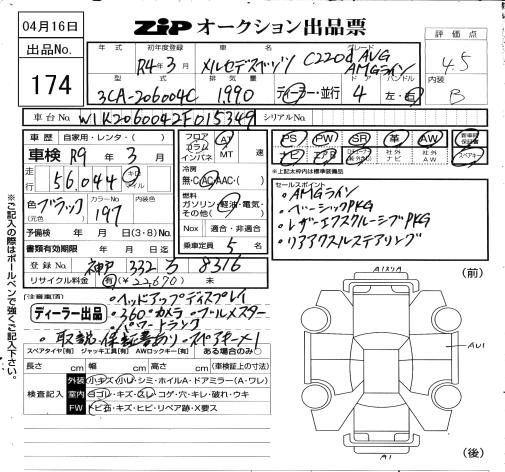 04月16日
ZIP オークション出品票
出品No.
174
年式 初年度登録 車名 グレード
R4年3月 メルセデスベンツ C220d AVG AMGライン
評価点
4.5
型式 排気量 ドア ハンドル
3CA-206004C 1,990 ディーラー・並行 4 左・右
内装
B
車台No. W1K2060042F015349 シリアルNo.
車歴 自家用・レンタ・( )
車検 R9年3月
走行 56,044 キロ マイル
色 ブラック カラーNo. 197 内装色
(元色)
予備検 年 月 日(3・8)No.
書類有効期限 年 月 日迄
登録No. 神戸 332 ち 8316
リサイクル料金 有(¥22,670) 未
フロア コラム インパネ AT MT 速
冷房
無・AC・AAC・( )
燃料
ガソリン・軽油・電気・
その他( )
Nox 適合・非適合
乗車定員 5 名
PS PW SR 革 AW
ナビ エアB 社外ナビ 社外AW
新車時保証書
スペアキー
※上記太枠内は標準装備品
セールスポイント
・AMGライン
・ベーシックPKG
・レザーエクスクルーシブPKG
・リアアクスルステアリング
注意事項
・ヘッドアップディスプレイ
ディーラー出品
・360°カメラ ・ブルメスター
・パワートランク
・取説・保証書あり・スペアキー1
スペアタイヤ[有] ジャッキ工具[有] AWロックキー[有] ある場合のみ○
長さ cm 幅 cm 高さ cm (車検証上の寸法)
検査記入
外装 小キズ・小凹・シミ・ホイルA・ドアミラー(A・ワレ)
室内 ヨゴレ・キズ・スレ・コゲ・穴・キレ・破れ・ウキ
FW トビ石・キズ・ヒビ・リペア跡・X要ス
※ご記入の際はボールペンで強くご記入下さい。
(前)
AU1
A1
(後)